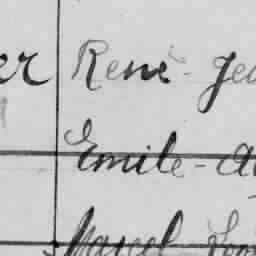 er René - Je
Emile - A
Marcel Lou